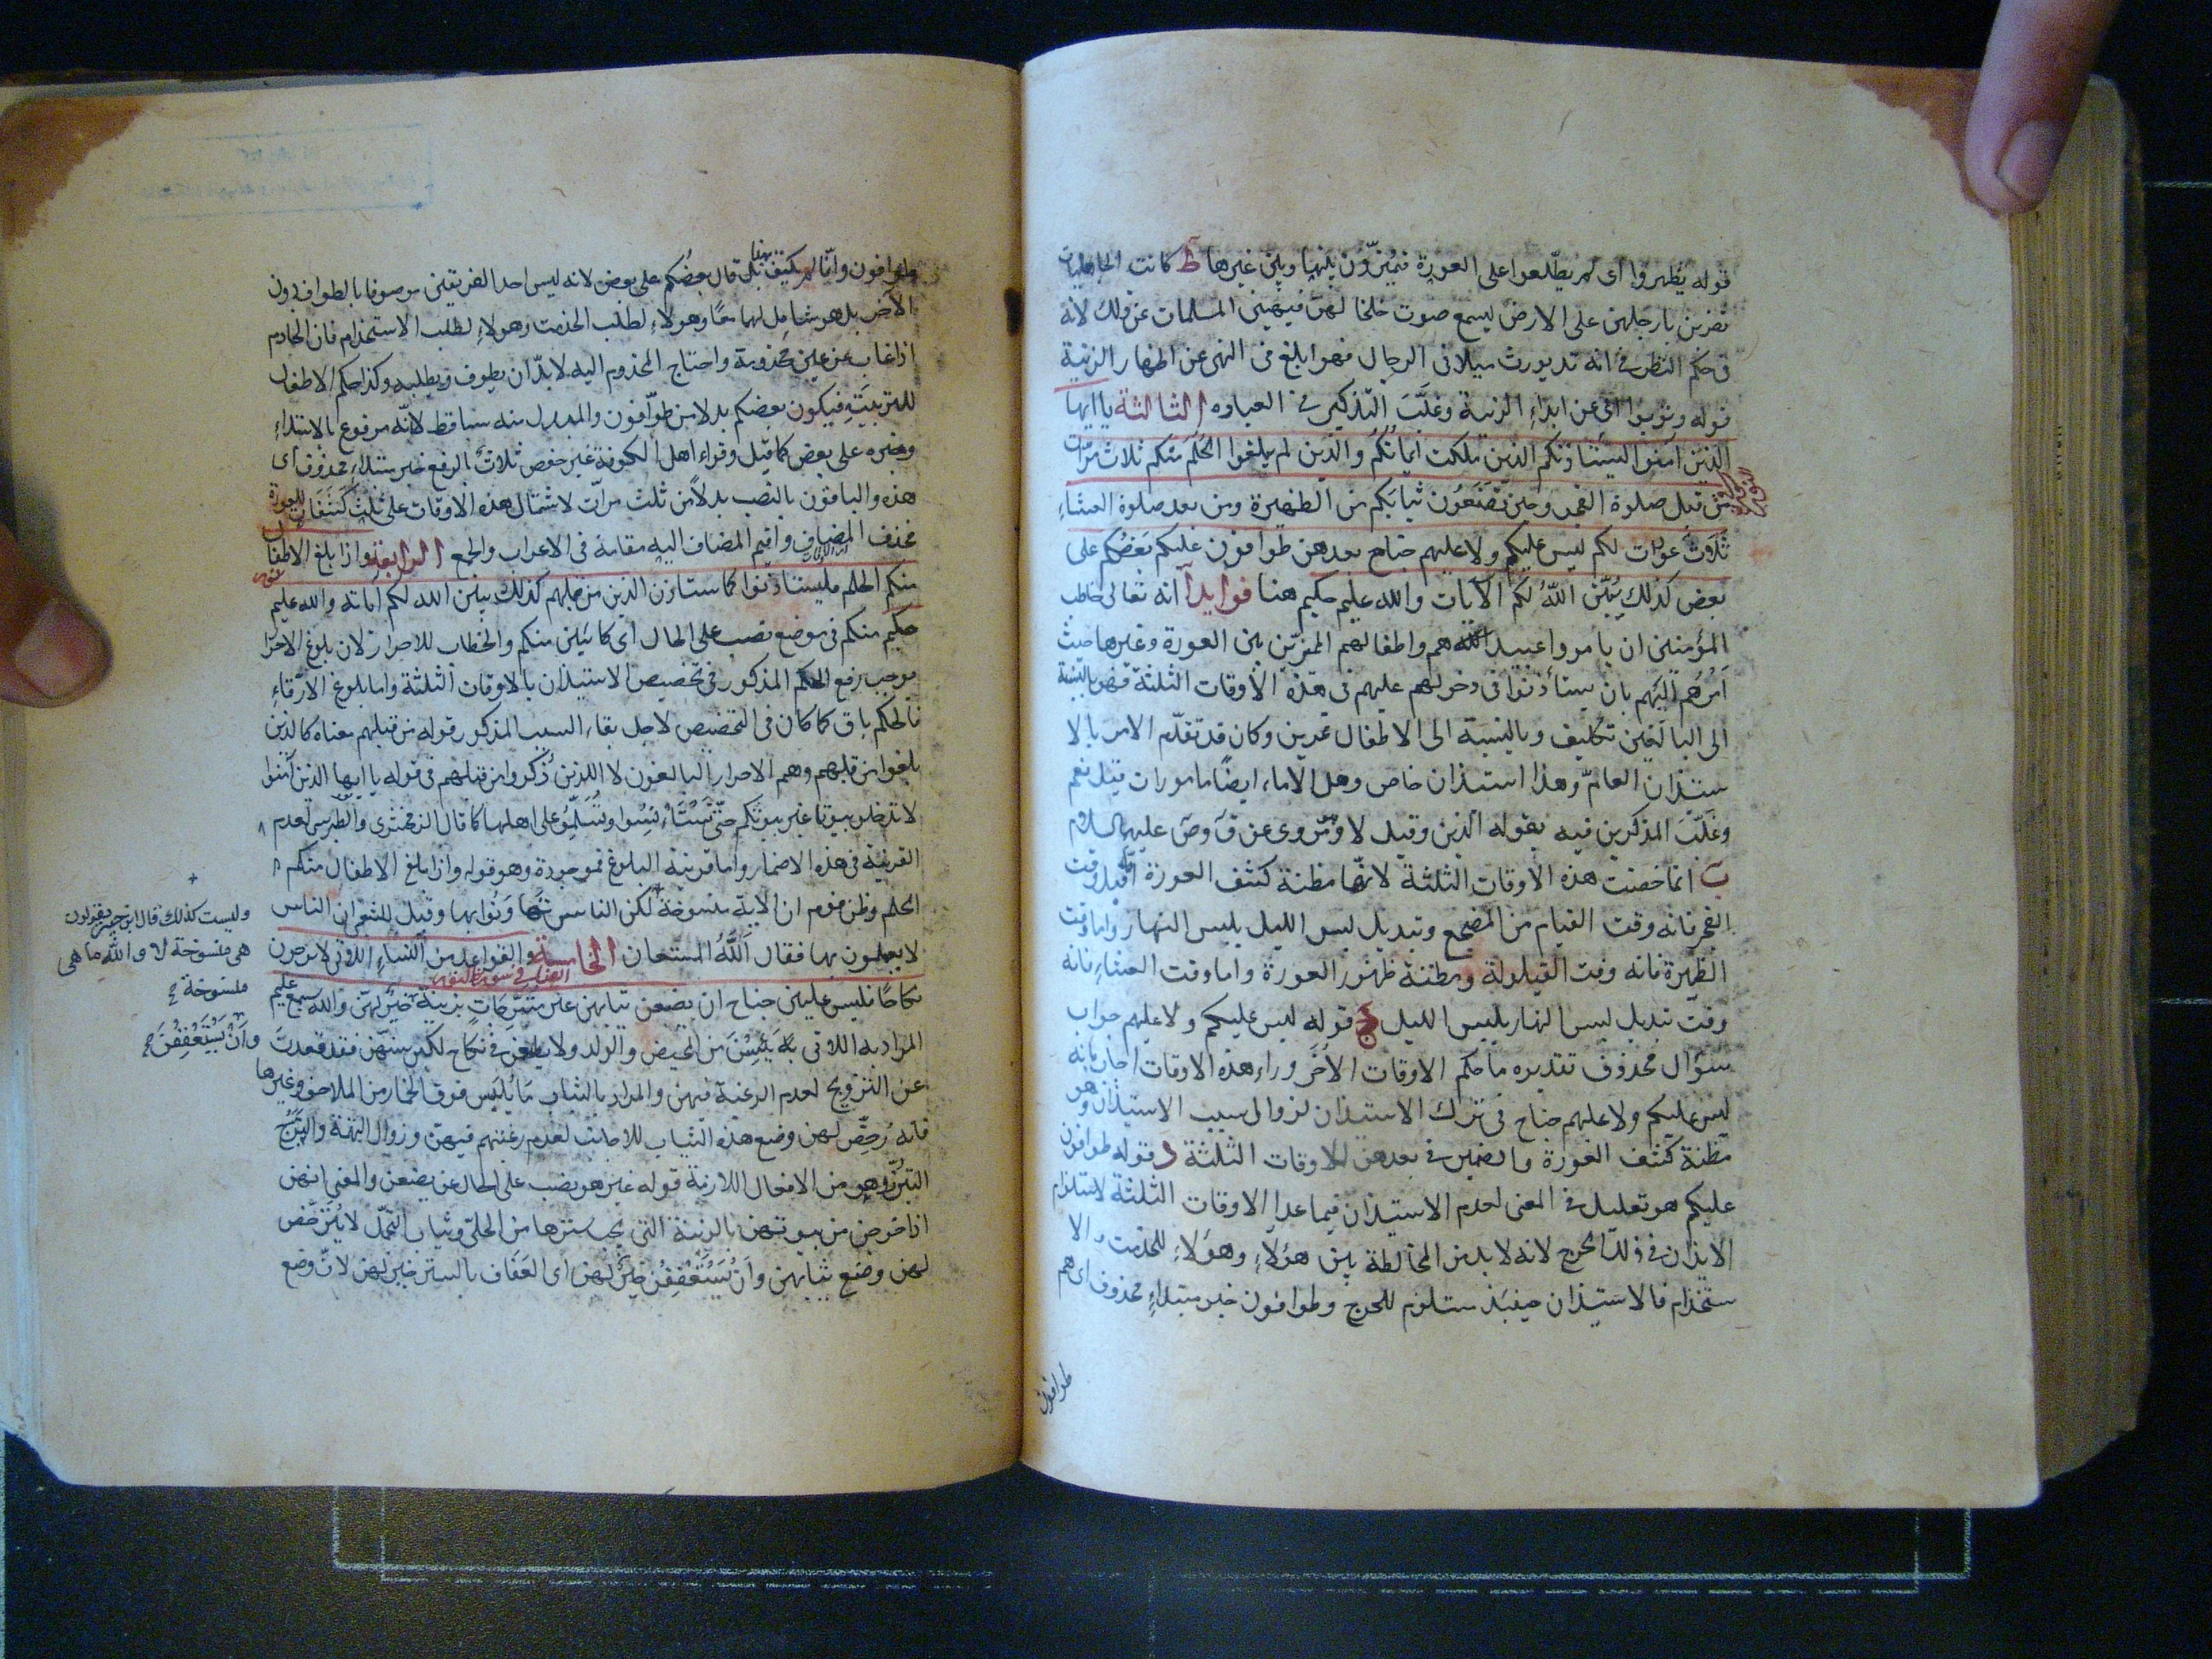 قوله يظهروا اى لم يطّلعوا على العورة فيميّزون بينها وبين غيرها ط كانت الجاهليات
تضربن بارجلهن على الارض ليسمع صوت خلخالهن فنهى المسلمات عن ذلك لانه
فى حكم النظر فى انه قد يورث ميلا فى الرجال فهو ابلغ فى النهى عن اظهار الزينة
قوله وتوبوا اى عن ابداء الزينة وغلّب التذكير فى العباره الثالثة يا ايها
الذين آمنوا ليستاذنكم الذين ملكت ايمانكم والذين لم يبلغوا الحلم منكم ثلاث مرّات
من قبل صلوة الفجر وحين تضعون ثيابكم من الظهيرة ومن بعد صلوة العشاء
ثلاث عورات لكم ليس عليكم ولا عليهم جناح بعدهن طوافون عليكم بعضكم على
بعض كذلك يبيّن الله لكم الآيات والله عليم حكيم هنا فوايد آ انه تعالى خاطب
المؤمنين ان يامروا عبيدهم واطفالهم المميزين بين العورة وغيرها حيث
امرهم اليهم بان يستأذنوا فى دخولهم عليهم فى هذه الأوقات الثلثة فهو بالنسبة
الى البالغين تكليف وبالنسبة الى الاطفال تمرين وكان قد تقدّم الامر بالا
ستيذان العامّ وهذا استيذان خاص وهل الاماء ايضًا مامورات قيل نعم
وغلّب المذكرين فيه بقوله الذين وقيل لا ومروى عن ق وص عليهما السلام
ب انما خصّت هذه الأوقات الثلثة لانّها مظنة كشف العورة اما قبل وقت
الفجر فانه وقت القيام من المضجع وتبديل لبس الليل بلبس النهار واما وقت
الظهيرة فانه وقت القيلولة ومظنة ظهور العورة واما وقت العشاء فانه
وقت تبديل لبس النهار بلبس الليل ج قوله ليس عليكم ولا عليهم جواب
سؤال محذوف تقديره ما حكم الاوقات الاخر وراء هذه الاوقات اجاب بانه
ليس عليكم ولا عليهم جناح فى ترك الاستيذان لزوال سبب الاستيذان وهو
مظنة كشف العورة والضمير فى بعدهن للاوقات الثلثة د قوله طوافون
عليكم هو تعليل فى المعنى لعدم الاستيذان فيما عدا الاوقات الثلثة لاستلزام
الايذان فى ذلك الحرج لانه لا بد من المخالطة بين هؤلاء وهؤلاء للخدمت والا
ستخدام فالاستيذان حينئذ مستلزم للحرج وطوافون خبر مبتداء محذوف اى هم
طوافون
طوافون وانّما لم يكتف بهنا بل قال بعضكم على بعض لانه ليس احد الفريقين موصوفا بالطواف دون
الآخر بل هو شامل لهما معًا وهولاء لطلب الخدمت وهولاء لطلب الاستخدام فان الخادم
اذا غاب عن عين مخدومة واحتاج المخدوم اليه لابدّ ان يطوف ويطلبه وكذا حكم الاطفال
للتربيت فيكون بعضكم بدلا من طوّافون والمبدل منه ساقط لانّه مرفوع بالابتداء
وخبره على بعض كما قيل وقراء اهل الكوفة غير حفص ثلاث بالرفع خبر مبتداء محذوف اى
هذه والباقون بالنصب بدلا من ثلث مرّات لاشتمال هذه الاوقات على ثلث كشفات للعورة
فحذف المضاف واقيم المضاف اليه مقامه فى الاعراب والجمع الرابعة واذا بلغ الاطفال
منكم الحلم فليستاذنوا كما ستاذن الذين من قبلهم كذلك يبين الله لكم آياته والله عليم
حكيم منكم فى موضع نصب على الحال اى كائنين منكم والخطاب للاحرار لان بلوغ الاحرار
موجب رفع الحكم المذكور فى تخصيص الاستيذان بالاوقات الثلثة واما بلوغ الارقّاء
فالحكم باق كما كان فى التخصيص لاجل بقاء السبب المذكور قوله من قبلهم معناه كالذين
بلغوا من قبلهم وهم الاحرار البالغون لا اللذين ذُكروا من قبلهم فى قوله يا ايها الذين آمنوا
لا تدخلوا بيوتا غير بيوتكم حتّى تستأنسوا وتسلّموا على اهلها كما قال الزمخشرى والطبرسى لعدم
القرينة فى هذه الاضمار واما قرينة البلوغ فموجودة وهو قوله واذا بلغ الاطفال منكم
الحلم وظن قوم ان الآية منسوخة لكن الناس وقيل للشعبى ان الناس
لا يعملون بها فقال اللهُ المستعان الخامسة والقواعد من النساء اللاتى لا يرجون
نكاحًا فليس عليهن جناح ان يضعن ثيابهن غير متبرّجات بزينة خير لهنّ والله سميع عليم
المراد به اللاتى يئسن من الحيض والولد ولا يطمعن فى نكاح لكبر سنهن فقد قعدت
عن التزويج لعدم الرغبة فيهن والمراد بالثياب ما يُلبس فوق الخمار من الملاحف وغيرها
فانه رُخّص لهن وضع هذه الثياب للاجانب لعدم رغبتهم فيهن وزوال التهمة والتبرّج
التبرّز وهو من الافعال اللازمة قوله غير هو نصب على الحال عن يضعن والمعنى انهن
اذا خرجن من بيوتهن بالزينة التى يجب سترها من الحلىّ وثياب التجمّل لا يُترخّص
لهن وضع ثيابهن وان يستعففن خير لهن اى العفاف بالستر خير لهن لانّ وضع
وليست كذلك قال ابن جبير يقولون
هى منسوخة لا والله ما هى
منسوخة
وان يستعففن